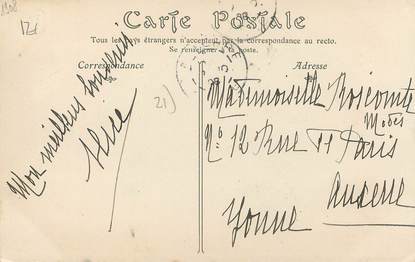 1908
12f
Carte Postale
Tous les pays étrangers n'acceptent pas la correspondance au recto.
Se renseigner à la poste.
Correspondance
Adresse
21)
Mon meilleur souvenir
Alice
Mademoiselle
Modes
N° 12 Rue de Paris
Auxerre
Yonne